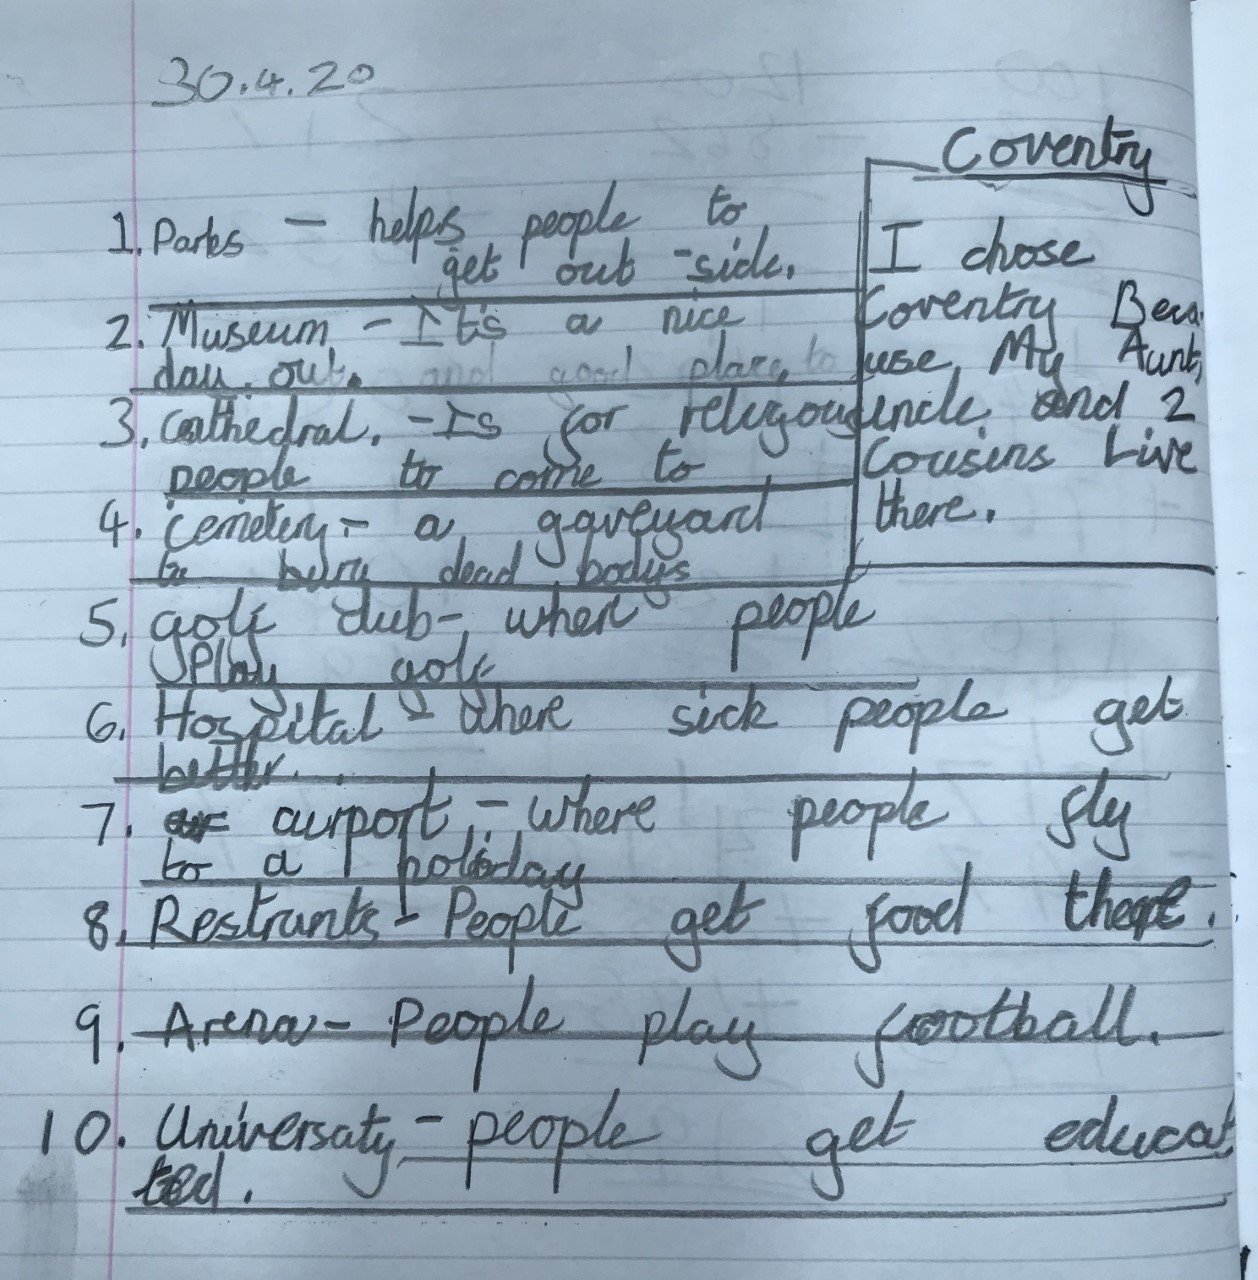 30.4.20
Coventry
I chose
Coventry Beca
use My Aunt,
uncle and 2
Cousins Live
there.
1. Parks - helps people to
get out-side.
2. Museum - It's a nice
day out. and good place to
3. Cathedral. - Is for religous
people to come to
4. cemetery - a gaveyard
to bury dead bodys
5. golf club - where people
Play golf
6. Hospital - where sick people get
better.
7. airport - where people fly
to a holiday
8. Restrants - People get food there.
9. Arena - People play football.
10. Universaty - people get educat
ted.